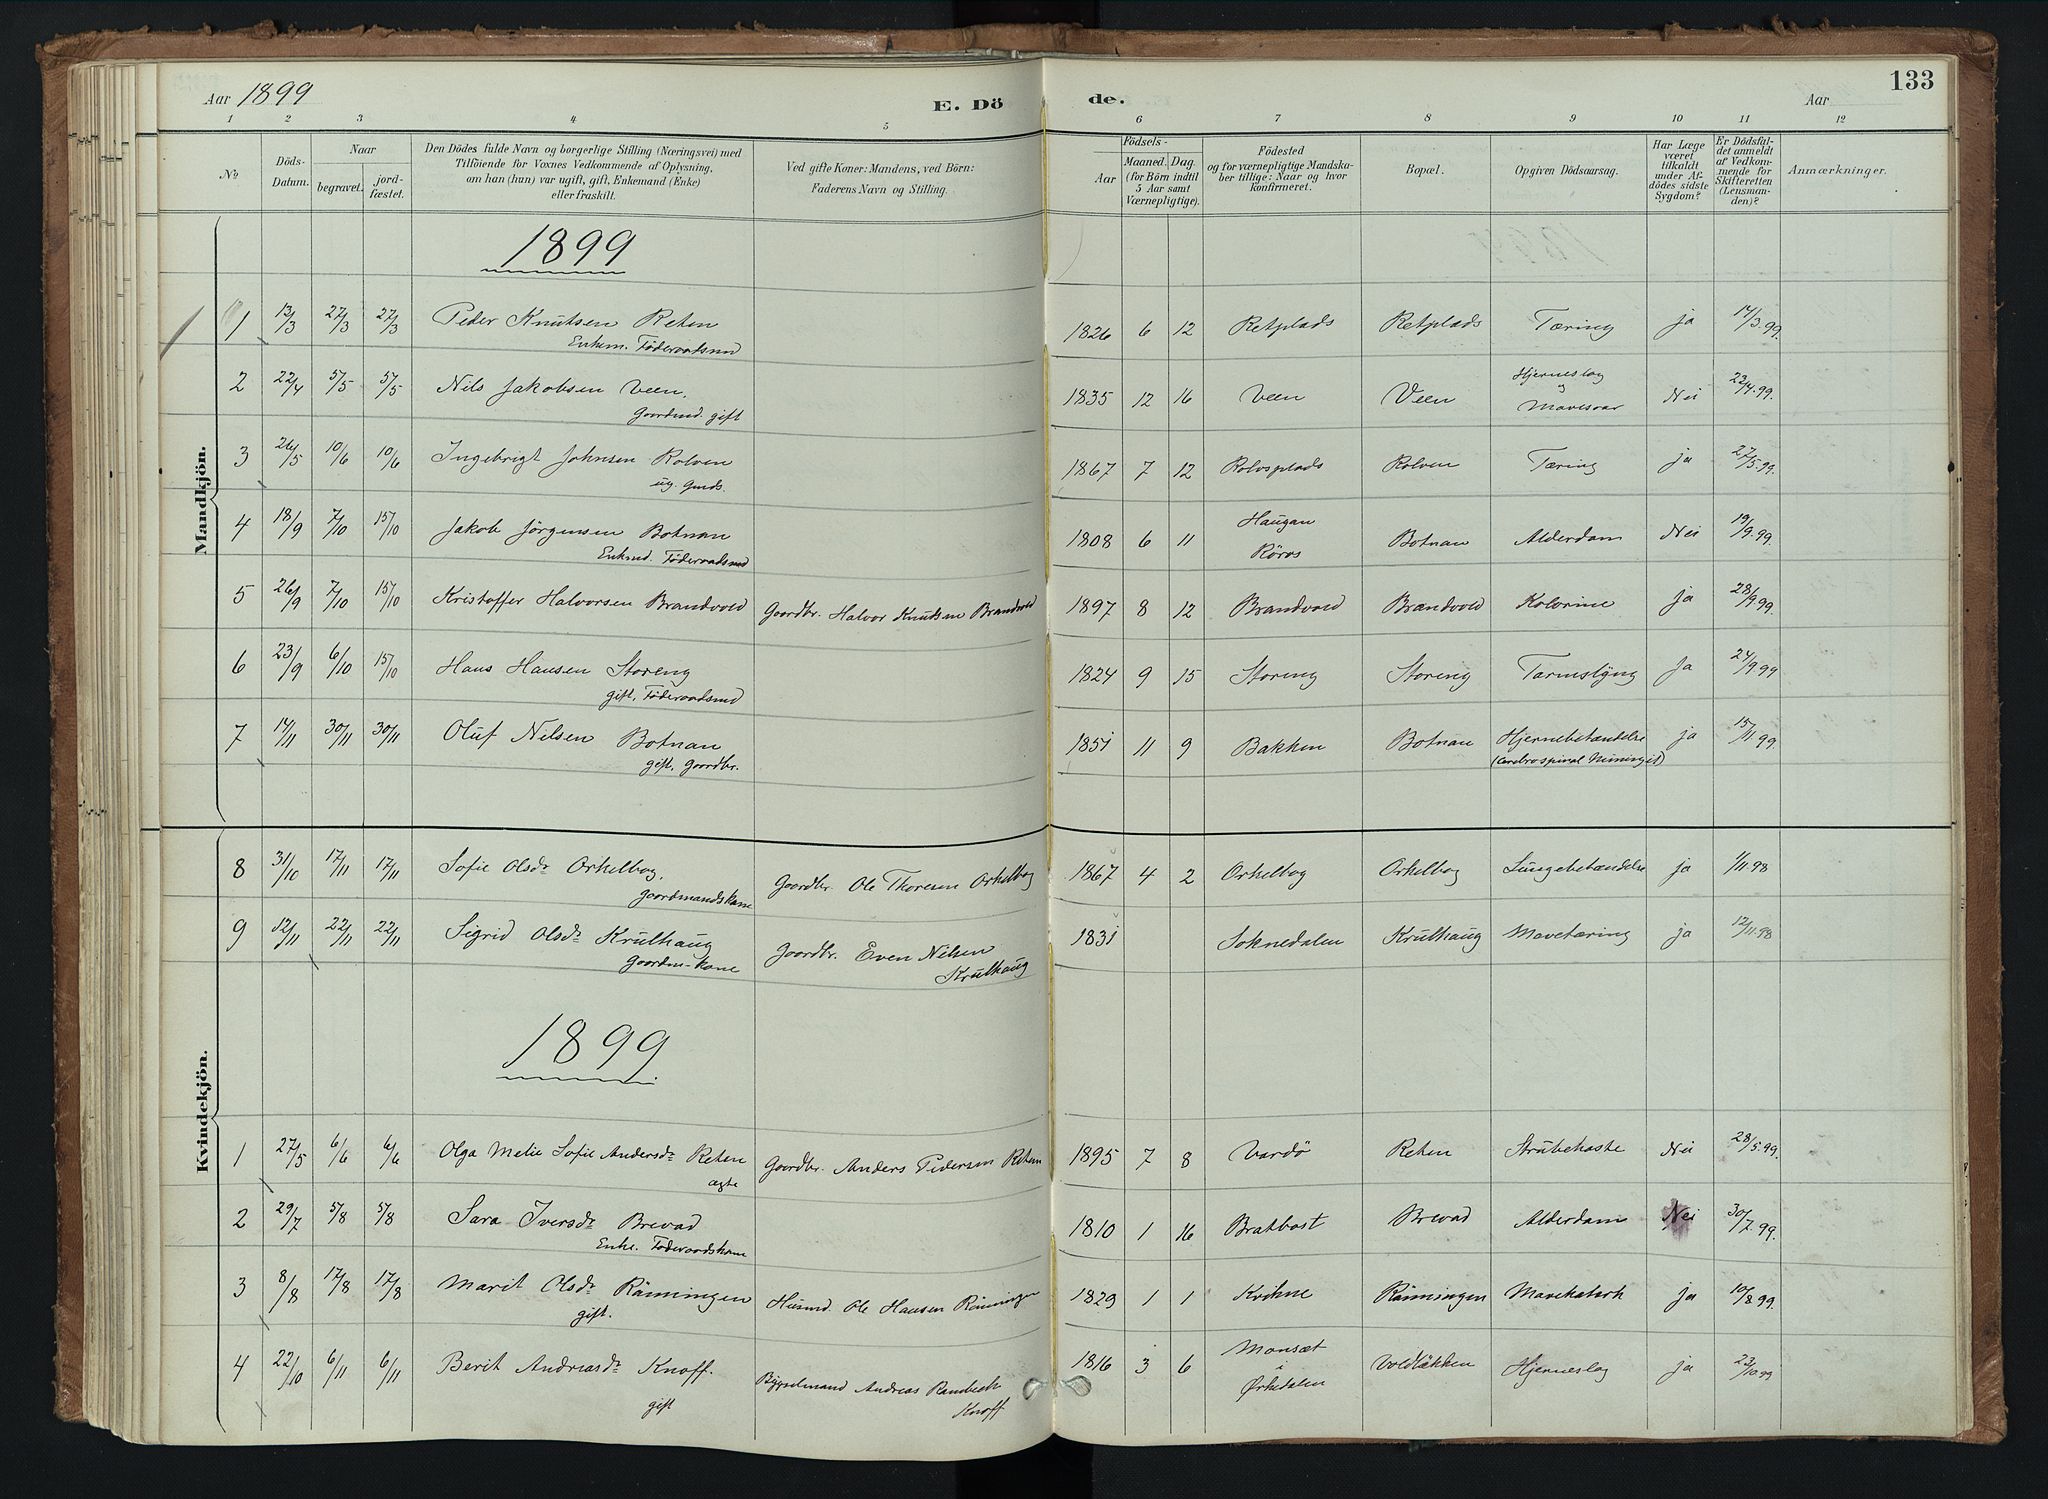 Aar 1899
E. Dö
de.
Aar
133
1 2 3 4 5 6 7 8 9 10 11 12
No
Döds-
Datum.
Naar
begravet.
jord-
fæstet.
Den Dödes fulde Navn og borgerlige Stilling (Næringsvei) med
Tilföiende for Voxnes Vedkommende af Oplysning,
om han (hun) var ugift, gift, Enkemand (Enke)
eller fraskilt.
Ved gifte Koner: Mandens, ved Börn:
Faderens Navn og Stilling.
Födsels-
Aar
Maaned.
Dag.
(for Börn indtil
5 Aar samt
Værnepligtige).
Födested
og for værnepligtige Mandska-
ber tillige: Naar og hvor
konfirmeret.
Bopæl.
Opgiven Dödsaarsag.
Har Læge
været
tilkaldt
under Af-
dödes sidste
Sygdom?
Er Dödsfal-
det anmeldt
af Vedkom-
mende for
Skifteretten
(Lensman-
den)?
Anmærkninger.
Mandkjön.
1899
1 13/3 27/3 27/3 Peder Knutsen Reten 1826 6 12 Retplads Retplads Tæring ja 14/3.99.
Enkem. Föderaadsmd
2 22/4 5/5 5/5 Nils Jakobsen Veen. 1835 12 16 Veen Veen Hjerneslag og Mavesaar Nei 23/4.99.
Gaardmd. gift
3 26/5 10/6 10/6 Ingebrigt Johnsen Rolven 1867 7 12 Rolvsplads Rolven Tæring ja 27/5.99.
ug. Gmds.
4 18/9 7/10 15/10 Jakob Jørgensen Botnan 1808 6 11 Haugan Röros Botnan Alderdom Nei 19/9.99.
Enkmd. Föderaadsmd
5 26/9 7/10 15/10 Kristoffer Halvorsen Brandvold Gaardbr. Halvor Knutsen Brandvold 1897 8 12 Brandvold Brandvold Kolerine ja 28/9.99.
6 23/9 6/10 15/10 Hans Hansen Storeng 1824 9 15 Storeng Storeng Tarmslyng Ja 24/9.99
gift, Föderaadsmd
7 14/11 30/11 30/11 Oluf Nilsen Botnan 1851 11 9 Bakken Botnan Hjernebetændelse ja 15/11.99.
gift, Gaardbr. (Cerebrospinal Meningit)
Kvindekjön.
8 31/10 17/11 17/11 Sofie Olsdr Orkelbog. Gaardbr. Ole Thoresen Orkelbog 1867 4 2 Orkelbog Orkelbog Lungebetændelse ja 1/11.98
Gaardmandskone
9 12/11 22/11 22/11 Sigrid Olsdr Krulhaug Gaardbr. Even Nilsen Krulhaug 1831 Soknedalen Krulhaug Mavetæring ja 12/11.98
Gaardm-kone
1899
1 27/5 6/6 6/6 Olga Melie Sofie Andersdr Reten Gaardbr. Anders Pedersen Reten 1895 7 8 Vardö Reten Strubehoste Nei 28/5.99.
ægte
2 29/7 5/8 5/8 Sara Iversdr Brevad 1810 1 16 Bratbost Brevad Alderdom Nei 30/7.99.
Enke. Föderaadskone
3 8/8 17/8 17/8 Marit Olsdr Rönningen Husmd. Ole Hansen Rönningen 1829 1 1 Kvikne Rönningen Mavekatarh ja 10/8.99.
gift.
4 22/10 6/11 6/11 Berit Andreasdr Knoff. Bygselmand Andreas Rambech Knoff 1816 3 6 Monsæt i Ørkedalen Voldløkken Hjerneslag ja 23/10.99
gift